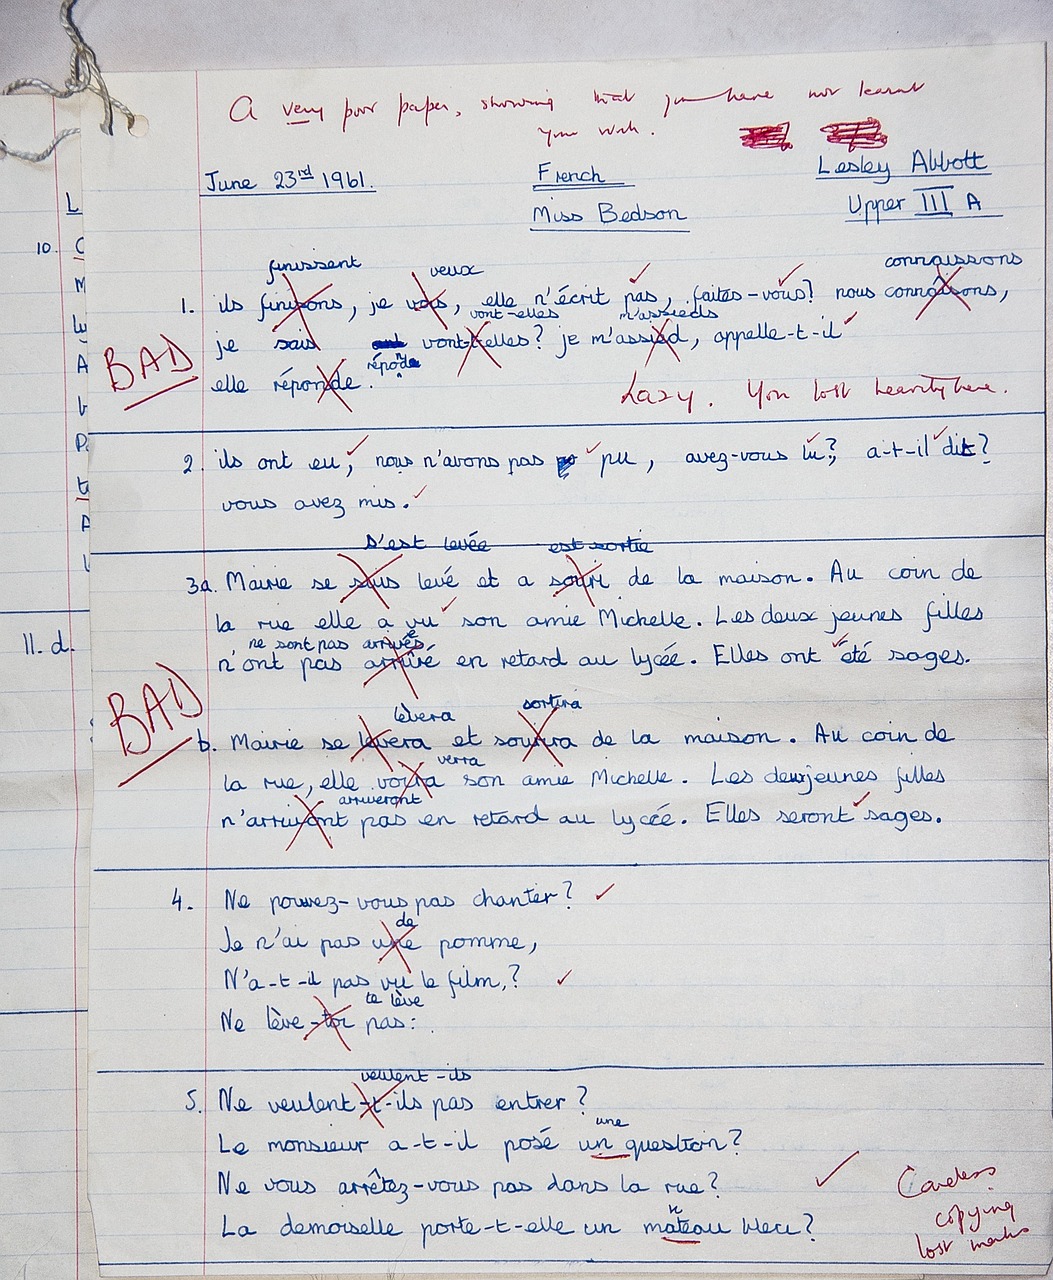 A very poor paper, showing that you have not learnt
your work.
June 23rd 1961. French Lesley Abbott
Miss Bedson Upper III A
finissent veux connaissons
1. ils finisons, je vois, elle n'écrit pas, faites-vous? nous connaisons,
vont-elles m'assieds
BAD
je sais vont-t-elles? je m'assied, appelle-t-il
réponde
elle réponde.
Lazy. You lost heavily here.
2. ils ont eu, nous n'avons pas pu, avez-vous lu?, a-t-il dit?
vous avez mis.
s'est levée est sortie
3a. Mairie se suis levé et a souri de la maison. Au coin de
la rue elle a vu son amie Michelle. Les deux jeunes filles
ne sont pas arrivées
n'ont pas arrivé en retard au lycée. Elles ont été sages.
BAD
lèvera sortira
b. Mairie se levera et sourira de la maison. Au coin de
verra
la rue, elle voira son amie Michelle. Les deux jeunes filles
arriveront
n'arriveront pas en retard au lycée. Elles seront sages.
4. Ne pouvez-vous pas chanter?
de
Je n'ai pas une pomme,
N'a-t-il pas vu le film,?
te lève
Ne lève-toi pas:
veulent-ils
5. Ne veulent-t-ils pas entrer?
une
Le monsieur a-t-il posé un question?
Ne vous arrêtez-vous pas dans la rue?
n
La demoiselle porte-t-elle un mateau bleu?
Careless
copying
lost marks
L
10. C
M
A
P
A
11. d.